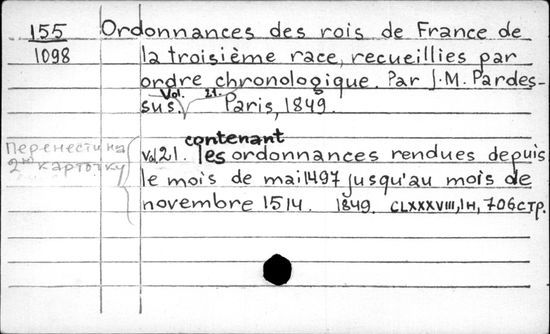 155 Ordonnances des rois de France de
1098 la troisième race, recueillies par
ordre chronologique. Par J.M. Pardes-
sus. Vol. 21. Paris, 1849.
Перенести на contenant
2ую карточку vol. 21. les ordonnances rendues depuis
le mois de mai 1497 jusqu'au mois de
novembre 1514. 1849. CLXXXVIII, 1н, 706 стр.